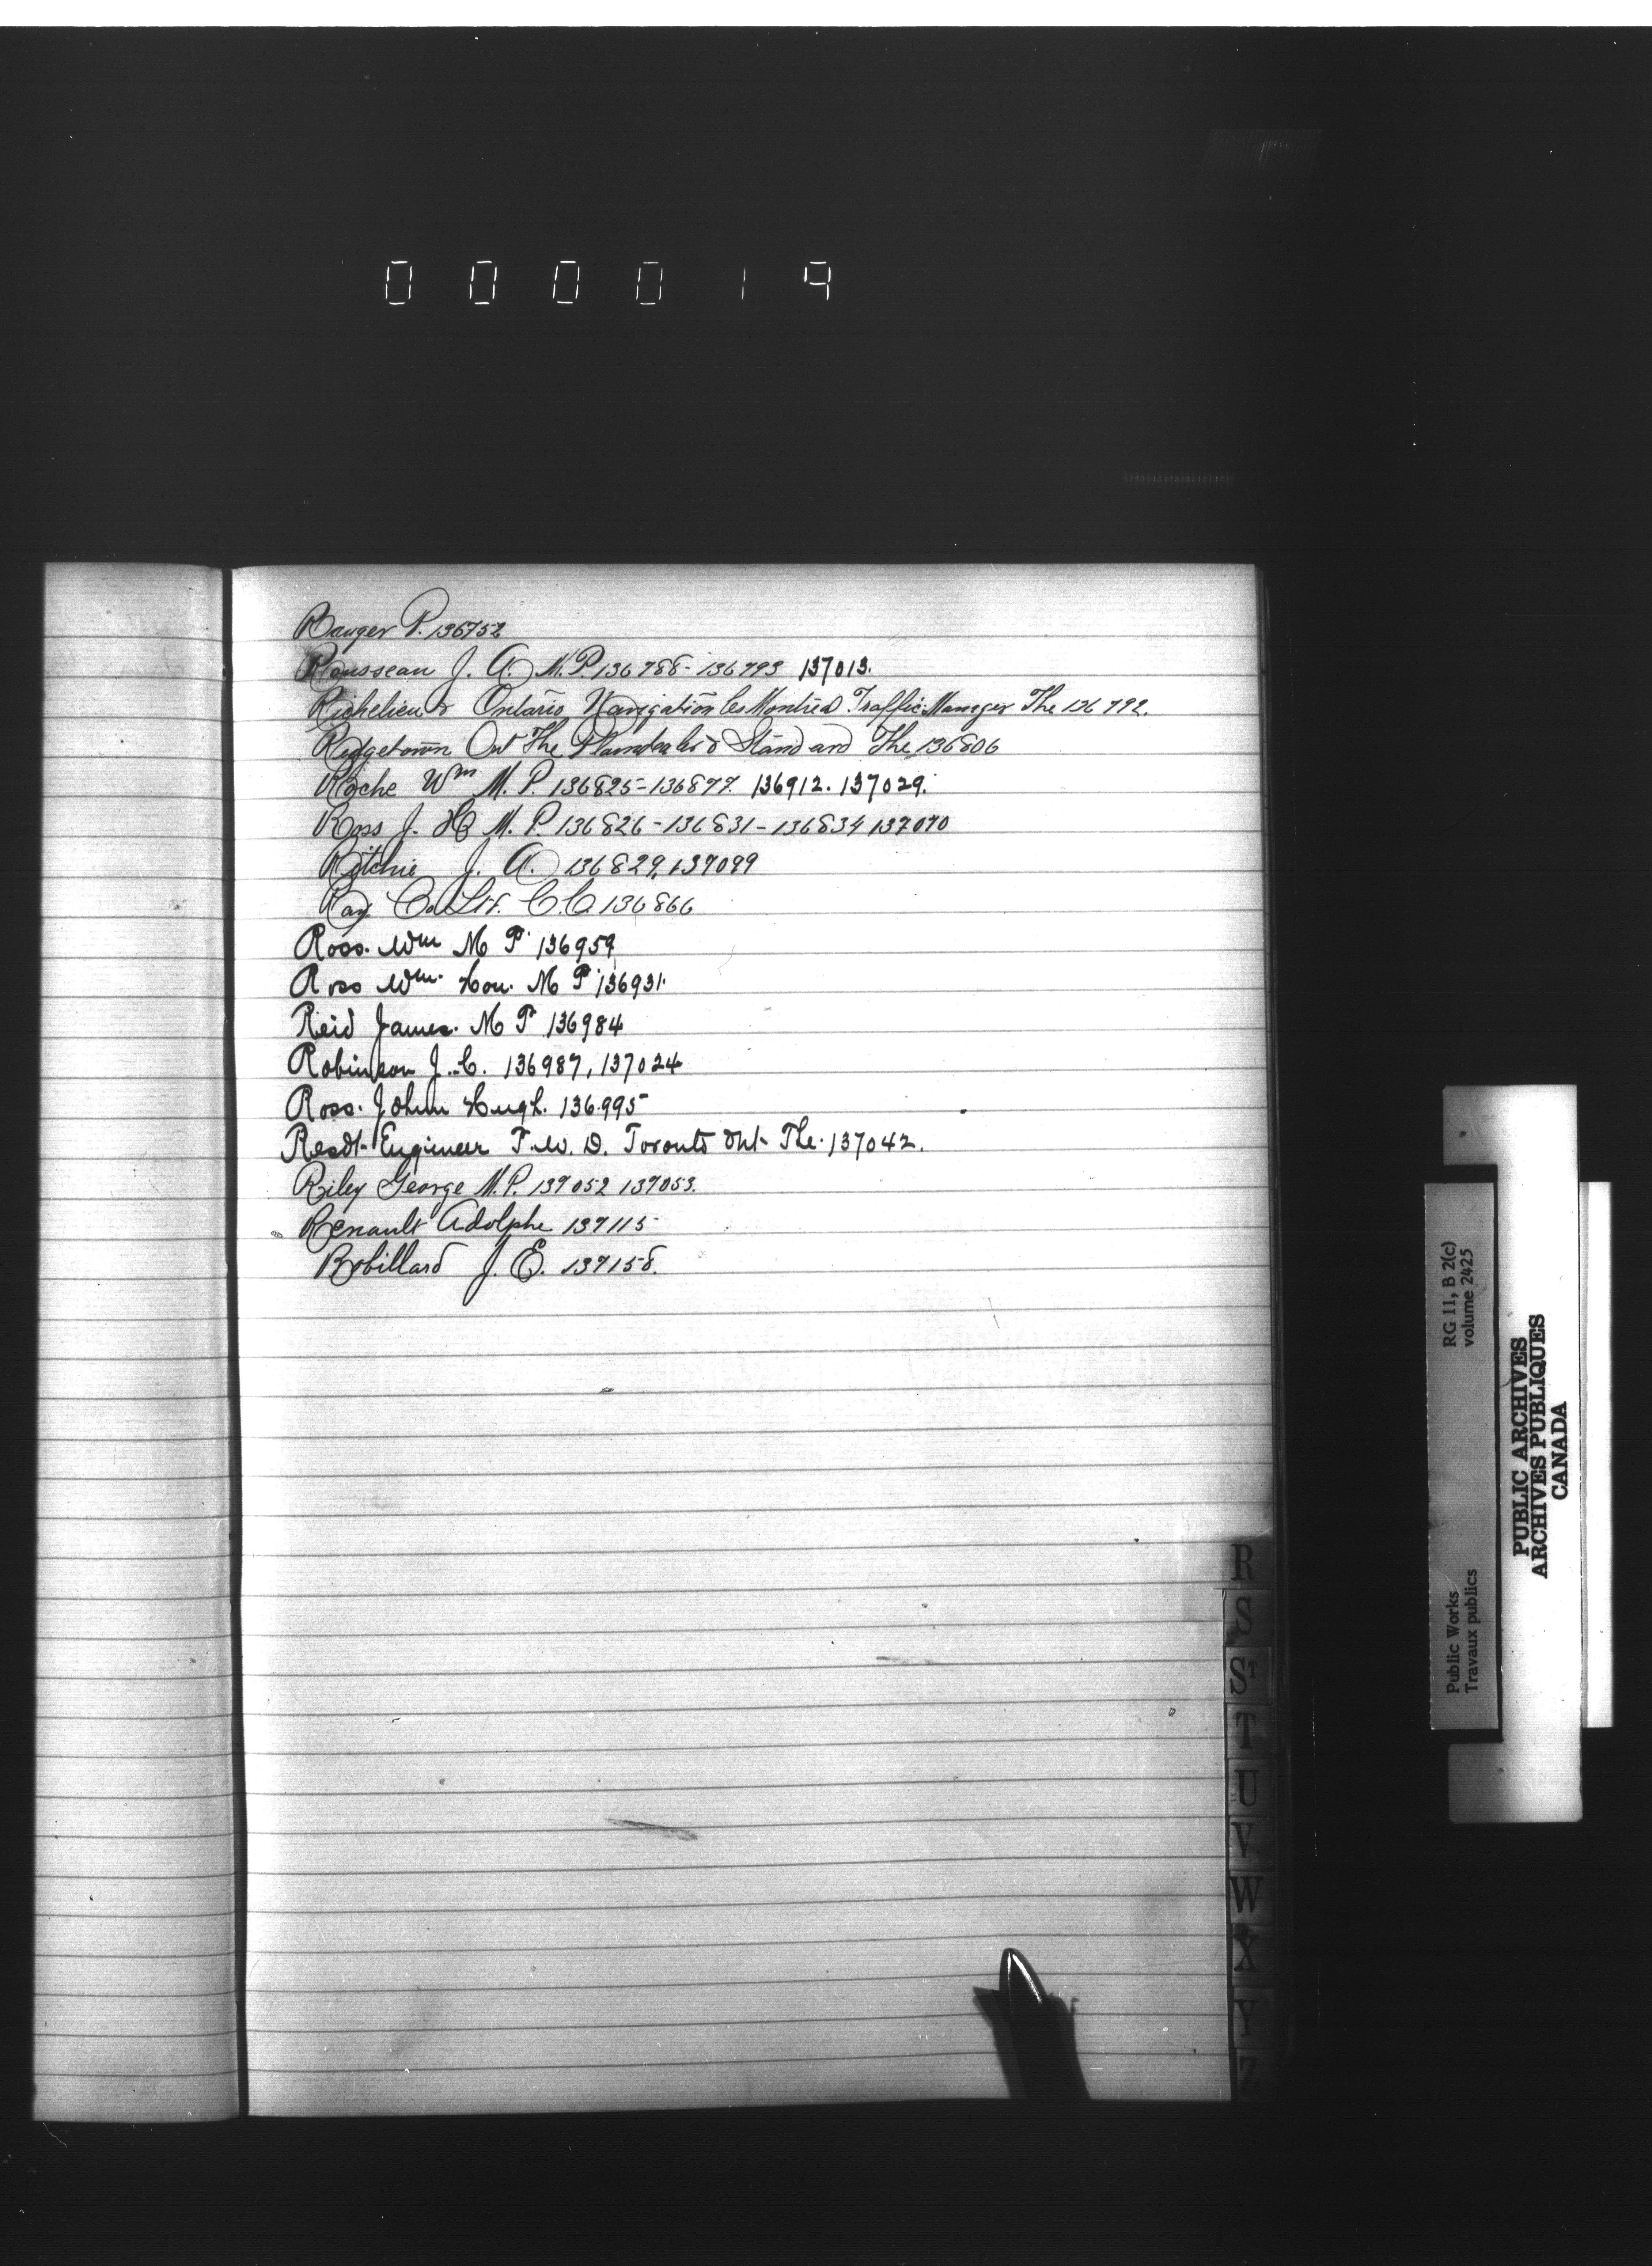 000019
Rauger P. 136752
Rousseau J. A. M.P. 136788-136793 137013.
Richelieu & Ontario Navigation Co Montreal Traffic Manager The 136792.
Ridgetown Ont The Plaindealer & Standard The 136806
Roche Wm M. P. 136825-136877. 136912. 137029.
Ross J. H. M. P. 136826-136831-136834 137070
Ritchie J. A. 136829, 137099
Ray Co. Ltd. C.C. 136866
Ross. Wm M P 136959
Ross Wm. Hon. M P 136931.
Reid James. M P 136984
Robinson J. C. 136987, 137024
Ross. John Hugh. 136995
Resdt Engineer P. W. D. Toronto Ont The. 137042.
Riley George M.P. 137052 137053.
Renault Adolphe 137115
Robillard J. E. 137158.
R
S
ST
T
U
V
W
X
Y
Z
Public Works
Travaux publics
RG 11, B 2(c)
volume 2425
PUBLIC ARCHIVES
ARCHIVES PUBLIQUES
CANADA